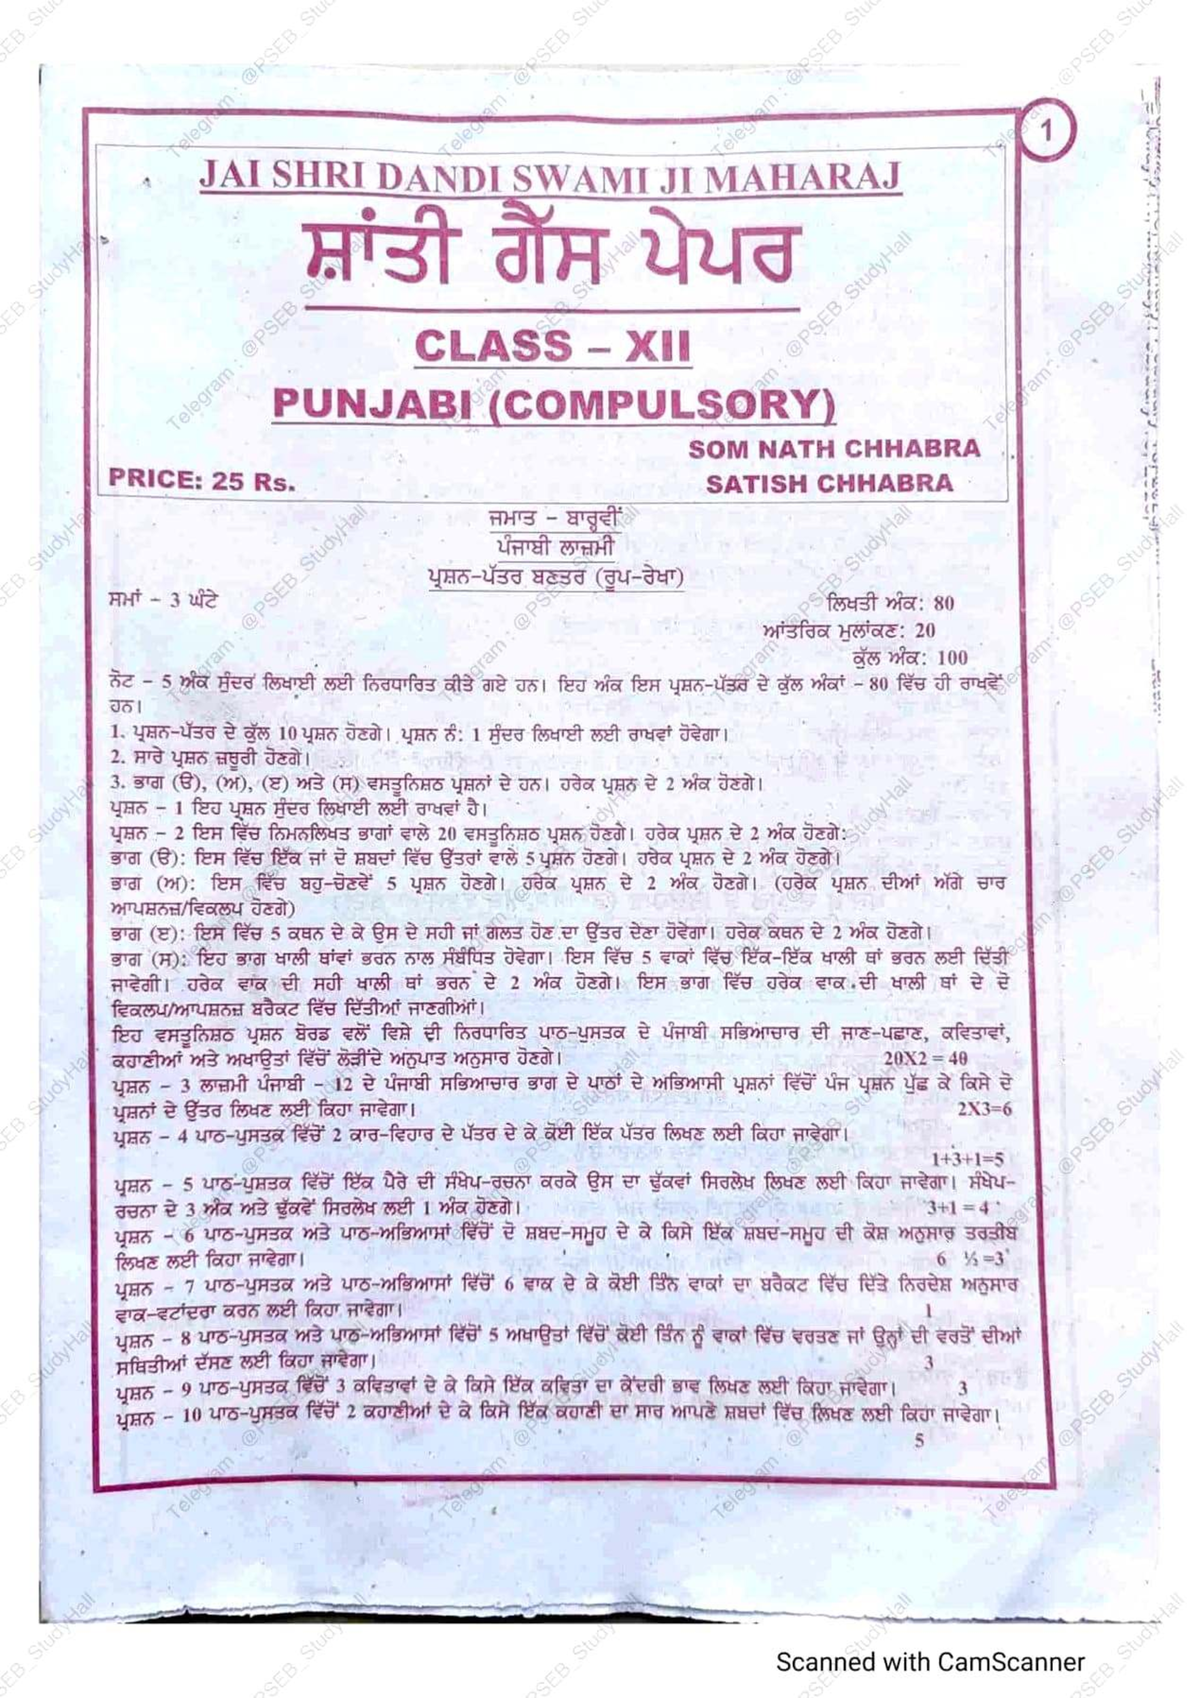 1
JAI SHRI DANDI SWAMI JI MAHARAJ
ਸ਼ਾਂਤੀ ਗੈੱਸ ਪੇਪਰ
CLASS – XII
PUNJABI (COMPULSORY)
SOM NATH CHHABRA
PRICE: 25 Rs.
SATISH CHHABRA
ਜਮਾਤ - ਬਾਰ੍ਹਵੀਂ
ਪੰਜਾਬੀ ਲਾਜ਼ਮੀ
ਪ੍ਰਸ਼ਨ-ਪੱਤਰ ਬਣਤਰ (ਰੂਪ-ਰੇਖਾ)
ਸਮਾਂ - 3 ਘੰਟੇ
ਲਿਖਤੀ ਅੰਕ: 80
ਆਂਤਰਿਕ ਮੁਲਾਂਕਣ: 20
ਕੁੱਲ ਅੰਕ: 100
ਨੋਟ - 5 ਅੰਕ ਸੁੰਦਰ ਲਿਖਾਈ ਲਈ ਨਿਰਧਾਰਿਤ ਕੀਤੇ ਗਏ ਹਨ। ਇਹ ਅੰਕ ਇਸ ਪ੍ਰਸ਼ਨ-ਪੱਤਰ ਦੇ ਕੁੱਲ ਅੰਕਾਂ - 80 ਵਿੱਚ ਹੀ ਰਾਖਵੇਂ
ਹਨ।
1. ਪ੍ਰਸ਼ਨ-ਪੱਤਰ ਦੇ ਕੁੱਲ 10 ਪ੍ਰਸ਼ਨ ਹੋਣਗੇ। ਪ੍ਰਸ਼ਨ ਨੰ: 1 ਸੁੰਦਰ ਲਿਖਾਈ ਲਈ ਰਾਖਵਾਂ ਹੋਵੇਗਾ।
2. ਸਾਰੇ ਪ੍ਰਸ਼ਨ ਜ਼ਰੂਰੀ ਹੋਣਗੇ।
3. ਭਾਗ (ੳ), (ਅ), (ੲ) ਅਤੇ (ਸ) ਵਸਤੂਨਿਸ਼ਠ ਪ੍ਰਸ਼ਨਾਂ ਦੇ ਹਨ। ਹਰੇਕ ਪ੍ਰਸ਼ਨ ਦੇ 2 ਅੰਕ ਹੋਣਗੇ।
ਪ੍ਰਸ਼ਨ - 1 ਇਹ ਪ੍ਰਸ਼ਨ ਸੁੰਦਰ ਲਿਖਾਈ ਲਈ ਰਾਖਵਾਂ ਹੈ।
ਪ੍ਰਸ਼ਨ - 2 ਇਸ ਵਿੱਚ ਨਿਮਨਲਿਖਤ ਭਾਗਾਂ ਵਾਲੇ 20 ਵਸਤੂਨਿਸ਼ਠ ਪ੍ਰਸ਼ਨ ਹੋਣਗੇ। ਹਰੇਕ ਪ੍ਰਸ਼ਨ ਦੇ 2 ਅੰਕ ਹੋਣਗੇ:
ਭਾਗ (ੳ): ਇਸ ਵਿੱਚ ਇੱਕ ਜਾਂ ਦੋ ਸ਼ਬਦਾਂ ਵਿੱਚ ਉੱਤਰਾਂ ਵਾਲੇ 5 ਪ੍ਰਸ਼ਨ ਹੋਣਗੇ। ਹਰੇਕ ਪ੍ਰਸ਼ਨ ਦੇ 2 ਅੰਕ ਹੋਣਗੇ।
ਭਾਗ (ਅ): ਇਸ ਵਿੱਚ ਬਹੁ-ਚੋਣਵੇਂ 5 ਪ੍ਰਸ਼ਨ ਹੋਣਗੇ। ਹਰੇਕ ਪ੍ਰਸ਼ਨ ਦੇ 2 ਅੰਕ ਹੋਣਗੇ। (ਹਰੇਕ ਪ੍ਰਸ਼ਨ ਦੀਆਂ ਅੱਗੇ ਚਾਰ
ਆਪਸ਼ਨਜ਼/ਵਿਕਲਪ ਹੋਣਗੇ)
ਭਾਗ (ੲ): ਇਸ ਵਿੱਚ 5 ਕਥਨ ਦੇ ਕੇ ਉਸ ਦੇ ਸਹੀ ਜਾਂ ਗਲਤ ਹੋਣ ਦਾ ਉੱਤਰ ਦੇਣਾ ਹੋਵੇਗਾ। ਹਰੇਕ ਕਥਨ ਦੇ 2 ਅੰਕ ਹੋਣਗੇ।
ਭਾਗ (ਸ): ਇਹ ਭਾਗ ਖਾਲੀ ਥਾਂਵਾਂ ਭਰਨ ਨਾਲ ਸੰਬੰਧਿਤ ਹੋਵੇਗਾ। ਇਸ ਵਿੱਚ 5 ਵਾਕਾਂ ਵਿੱਚ ਇੱਕ-ਇੱਕ ਖਾਲੀ ਥਾਂ ਭਰਨ ਲਈ ਦਿੱਤੀ
ਜਾਵੇਗੀ। ਹਰੇਕ ਵਾਕ ਦੀ ਸਹੀ ਖਾਲੀ ਥਾਂ ਭਰਨ ਦੇ 2 ਅੰਕ ਹੋਣਗੇ। ਇਸ ਭਾਗ ਵਿੱਚ ਹਰੇਕ ਵਾਕ ਦੀ ਖਾਲੀ ਥਾਂ ਦੇ ਦੋ
ਵਿਕਲਪ/ਆਪਸ਼ਨਜ਼ ਬਰੈਕਟ ਵਿੱਚ ਦਿੱਤੀਆਂ ਜਾਣਗੀਆਂ।
ਇਹ ਵਸਤੂਨਿਸ਼ਠ ਪ੍ਰਸ਼ਨ ਬੋਰਡ ਵਲੋਂ ਵਿਸ਼ੇ ਦੀ ਨਿਰਧਾਰਿਤ ਪਾਠ-ਪੁਸਤਕ ਦੇ ਪੰਜਾਬੀ ਸਭਿਆਚਾਰ ਦੀ ਜਾਣ-ਪਛਾਣ, ਕਵਿਤਾਵਾਂ,
ਕਹਾਣੀਆਂ ਅਤੇ ਅਖਾਉਤਾਂ ਵਿੱਚੋਂ ਲੋੜੀਂਦੇ ਅਨੁਪਾਤ ਅਨੁਸਾਰ ਹੋਣਗੇ। 20X2 = 40
ਪ੍ਰਸ਼ਨ - 3 ਲਾਜ਼ਮੀ ਪੰਜਾਬੀ - 12 ਦੇ ਪੰਜਾਬੀ ਸਭਿਆਚਾਰ ਭਾਗ ਦੇ ਪਾਠਾਂ ਦੇ ਅਭਿਆਸੀ ਪ੍ਰਸ਼ਨਾਂ ਵਿੱਚੋਂ ਪੰਜ ਪ੍ਰਸ਼ਨ ਪੁੱਛ ਕੇ ਕਿਸੇ ਦੋ
ਪ੍ਰਸ਼ਨਾਂ ਦੇ ਉੱਤਰ ਲਿਖਣ ਲਈ ਕਿਹਾ ਜਾਵੇਗਾ। 2X3=6
ਪ੍ਰਸ਼ਨ - 4 ਪਾਠ-ਪੁਸਤਕ ਵਿੱਚੋਂ 2 ਕਾਰ-ਵਿਹਾਰ ਦੇ ਪੱਤਰ ਦੇ ਕੇ ਕੋਈ ਇੱਕ ਪੱਤਰ ਲਿਖਣ ਲਈ ਕਿਹਾ ਜਾਵੇਗਾ।
1+3+1=5
ਪ੍ਰਸ਼ਨ - 5 ਪਾਠ-ਪੁਸਤਕ ਵਿੱਚੋਂ ਇੱਕ ਪੈਰੇ ਦੀ ਸੰਖੇਪ-ਰਚਨਾ ਕਰਕੇ ਉਸ ਦਾ ਢੁੱਕਵਾਂ ਸਿਰਲੇਖ ਲਿਖਣ ਲਈ ਕਿਹਾ ਜਾਵੇਗਾ। ਸੰਖੇਪ-
ਰਚਨਾ ਦੇ 3 ਅੰਕ ਅਤੇ ਢੁੱਕਵੇਂ ਸਿਰਲੇਖ ਲਈ 1 ਅੰਕ ਹੋਣਗੇ। 3+1 = 4
ਪ੍ਰਸ਼ਨ - 6 ਪਾਠ-ਪੁਸਤਕ ਅਤੇ ਪਾਠ-ਅਭਿਆਸਾਂ ਵਿੱਚੋਂ ਦੋ ਸ਼ਬਦ-ਸਮੂਹ ਦੇ ਕੇ ਕਿਸੇ ਇੱਕ ਸ਼ਬਦ-ਸਮੂਹ ਦੀ ਕੋਸ਼ ਅਨੁਸਾਰ ਤਰਤੀਬ
ਲਿਖਣ ਲਈ ਕਿਹਾ ਜਾਵੇਗਾ। 6 ½ =3
ਪ੍ਰਸ਼ਨ - 7 ਪਾਠ-ਪੁਸਤਕ ਅਤੇ ਪਾਠ-ਅਭਿਆਸਾਂ ਵਿੱਚੋਂ 6 ਵਾਕ ਦੇ ਕੇ ਕੋਈ ਤਿੰਨ ਵਾਕਾਂ ਦਾ ਬਰੈਕਟ ਵਿੱਚ ਦਿੱਤੇ ਨਿਰਦੇਸ਼ ਅਨੁਸਾਰ
ਵਾਕ-ਵਟਾਂਦਰਾ ਕਰਨ ਲਈ ਕਿਹਾ ਜਾਵੇਗਾ। 1
ਪ੍ਰਸ਼ਨ - 8 ਪਾਠ-ਪੁਸਤਕ ਅਤੇ ਪਾਠ-ਅਭਿਆਸਾਂ ਵਿੱਚੋਂ 5 ਅਖਾਉਤਾਂ ਵਿੱਚੋਂ ਕੋਈ ਤਿੰਨ ਨੂੰ ਵਾਕਾਂ ਵਿੱਚ ਵਰਤਣ ਜਾਂ ਉਨ੍ਹਾਂ ਦੀ ਵਰਤੋਂ ਦੀਆਂ
ਸਥਿਤੀਆਂ ਦੱਸਣ ਲਈ ਕਿਹਾ ਜਾਵੇਗਾ। 3
ਪ੍ਰਸ਼ਨ - 9 ਪਾਠ-ਪੁਸਤਕ ਵਿੱਚੋਂ 3 ਕਵਿਤਾਵਾਂ ਦੇ ਕੇ ਕਿਸੇ ਇੱਕ ਕਵਿਤਾ ਦਾ ਕੇਂਦਰੀ ਭਾਵ ਲਿਖਣ ਲਈ ਕਿਹਾ ਜਾਵੇਗਾ। 3
ਪ੍ਰਸ਼ਨ - 10 ਪਾਠ-ਪੁਸਤਕ ਵਿੱਚੋਂ 2 ਕਹਾਣੀਆਂ ਦੇ ਕੇ ਕਿਸੇ ਇੱਕ ਕਹਾਣੀ ਦਾ ਸਾਰ ਆਪਣੇ ਸ਼ਬਦਾਂ ਵਿੱਚ ਲਿਖਣ ਲਈ ਕਿਹਾ ਜਾਵੇਗਾ।
5
Scanned with CamScanner
Telegram : @PSEB_StudyHall